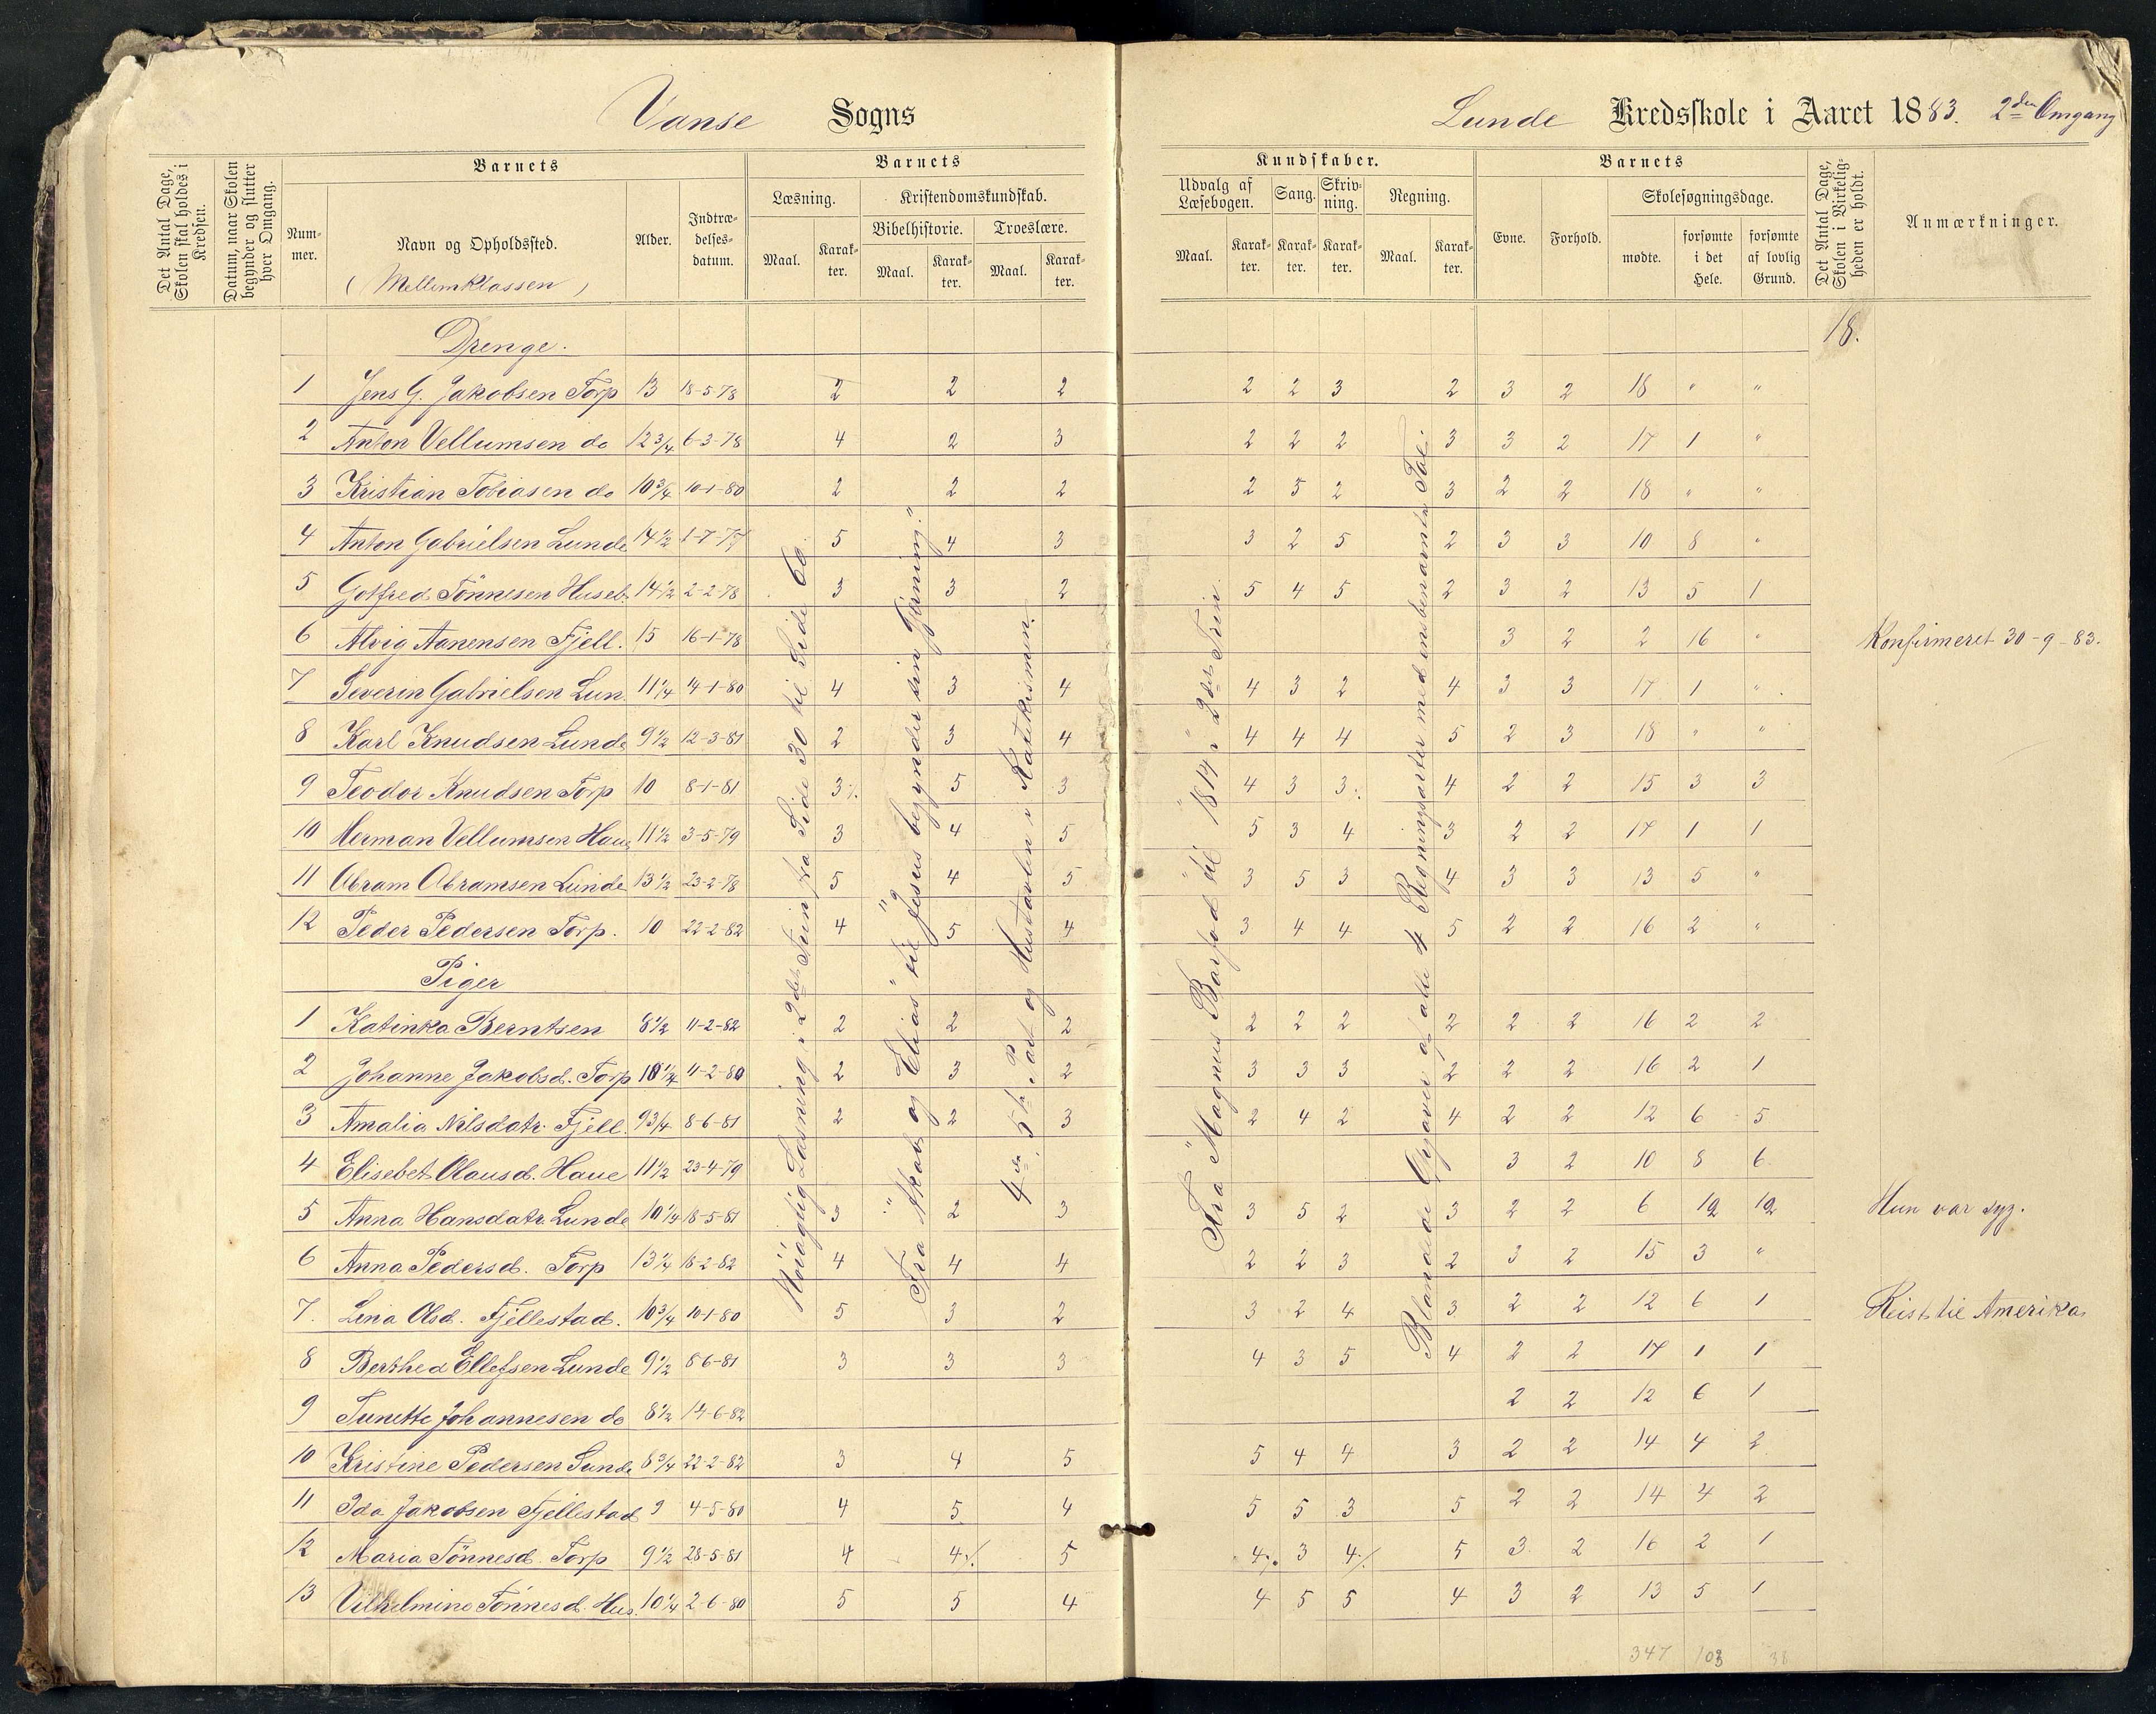 Vanse Sogns
Lunde Kredsskole i Aaret 1883. 2den Omgang
Det Antal Dage, Skolen skal holdes i Kredsen.
Datum, naar Skolen begynder og slutter hver Omgang.
Barnets
Nummer.
Navn og Opholdssted.
(Mellemklassen)
Alder.
Indtrædelses-datum.
Barnets
Læsning.
Maal.
Karakter.
Kristendomskundskab.
Bibelhistorie.
Maal.
Karakter.
Troeslære.
Maal.
Karakter.
Kundskaber.
Udvalg af Læsebogen.
Maal.
Karakter.
Sang.
Karakter.
Skrivning.
Karakter.
Regning.
Maal.
Karakter.
Barnets
Evne.
Forhold.
Skolesøgningsdage.
mødte.
forsømte i det Hele.
forsømte af lovlig Grund.
Det Antal Dage, Skolen i Virkeligheden er holdt.
Anmærkninger.
18.
Drenge.
1 Jens G. Jakobsen Torp 13 18-5-78 2 2 2 2 2 3 2 3 2 18 " "
2 Anton Vellumsen do 12 3/4 6-3-78 4 2 3 2 2 2 3 3 2 17 1 "
3 Kristian Tobiasen do 10 3/4 10-1-80 2 2 2 2 5 2 3 2 2 18 " "
4 Anton Gabrielsen Lunde 14 1/2 1-7-77 5 4 3 3 2 5 2 3 3 10 8 "
5 Gotfred Tönnesen Huseb. 14 1/2 2-2-78 3 3 2 5 4 5 2 3 2 13 5 1
6 Alvig Aanensen Fjell. 15 16-1-78 3 2 2 16 " Konfirmeret 30-9-83.
7 Severin Gabrielsen Lun. 11 1/4 14-1-80 4 3 4 4 3 2 4 3 3 17 1 "
8 Karl Knudsen Lunde 9 1/2 12-3-81 2 3 4 4 4 4 5 2 3 18 " "
9 Teodor Knudsen Torp 10 8-1-81 3 5 3 4 3 3 4 2 2 15 3 3
10 Herman Vellumsen Haue 11 1/2 3-5-79 3 4 5 5 3 4 3 2 2 17 1 1
11 Abram Abramsen Lunde 13 1/2 23-2-78 5 4 5 3 5 3 4 3 3 13 5 "
12 Peder Pedersen Torp. 10 22-2-82 4 5 4 3 4 4 5 2 2 16 2 "
Piger
1 Katinka Berntsen 8 1/2 11-2-82 2 2 2 2 2 2 2 2 2 16 2 2
2 Johanne Jakobsd. Torp 10 1/4 4-2-80 2 3 2 3 3 3 2 2 2 16 2 1
3 Amalia Nilsdatr Fjell. 9 3/4 8-6-81 2 2 3 2 4 2 4 2 2 12 6 5
4 Elisebet Olausd. Haue 11 1/2 23-4-79 3 2 10 8 6
5 Anna Hansdatr Lunde 10 1/4 18-5-81 3 2 3 3 5 2 3 2 2 6 12 12 Hun var syg.
6 Anna Pedersd. Torp 13 1/4 18-2-82 4 4 4 2 2 3 2 3 2 15 3 "
7. Lina Olsd. Fjellestad. 10 3/4 10-1-80 5 3 2 3 2 4 3 2 2 12 6 1 Reist til Amerika
8 Berthea Ellefsen Lunde 9 1/2 8-6-81 3 3 3 4 3 5 4 2 2 17 1 1
9 Tunette Johannesen do 8 1/2 14-6-82 2 2 12 6 1
10 Kristine Pedersen Lunde 8 3/4 22-2-82 3 4 5 5 4 4 3 2 2 14 4 2
11 Ida Jakobsen Fjellestad 9 4-5-80 4 5 4 5 5 3 5 2 2 14 4 2
12 Maria Tönnesd. Torp 9 1/2 28-5-81 4 4 5 4 3 4 5 3 2 16 2 1
13 Vilhelmine Tönnesd. Hus. 10 1/4 2-6-80 5 5 4 4 5 5 4 3 2 13 5 1
347 103 38
Nöiagtig Læsning i 2det Trin fra Side 30 til Side 60.
Fra "Akab og Elias" til "Jesus begynder sin Gjerning."
4de, 5te Part og Hustavlen i Katekismen.
Fra "Magnus Barfod" til "1814" i 2det Trin.
Blandede Opgaver af alle 4 Regningsarter med ensbenævnte Tal.